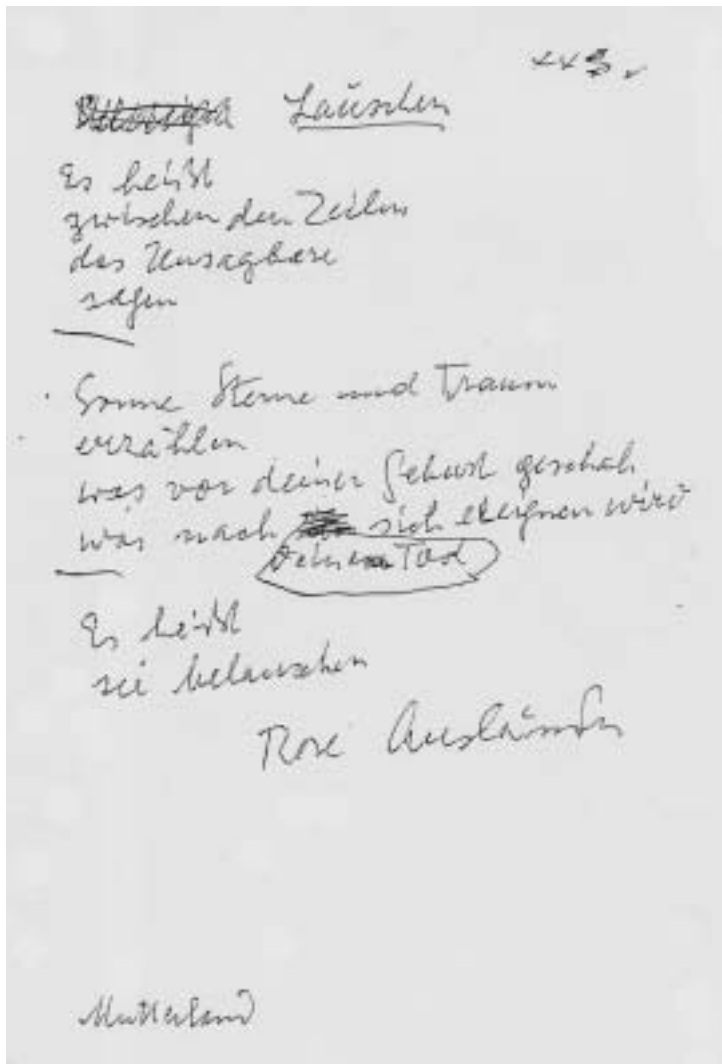 Lauschen
Es heißt
zwischen den Zeilen
das Unsagbare
sagen
Sonne Sterne und Traum
erzählen
was vor deiner Geburt geschah
was nach sich ereignen wird
deinem Tod
Es heißt
sie belauschen
Rose Ausländer
Mutterland